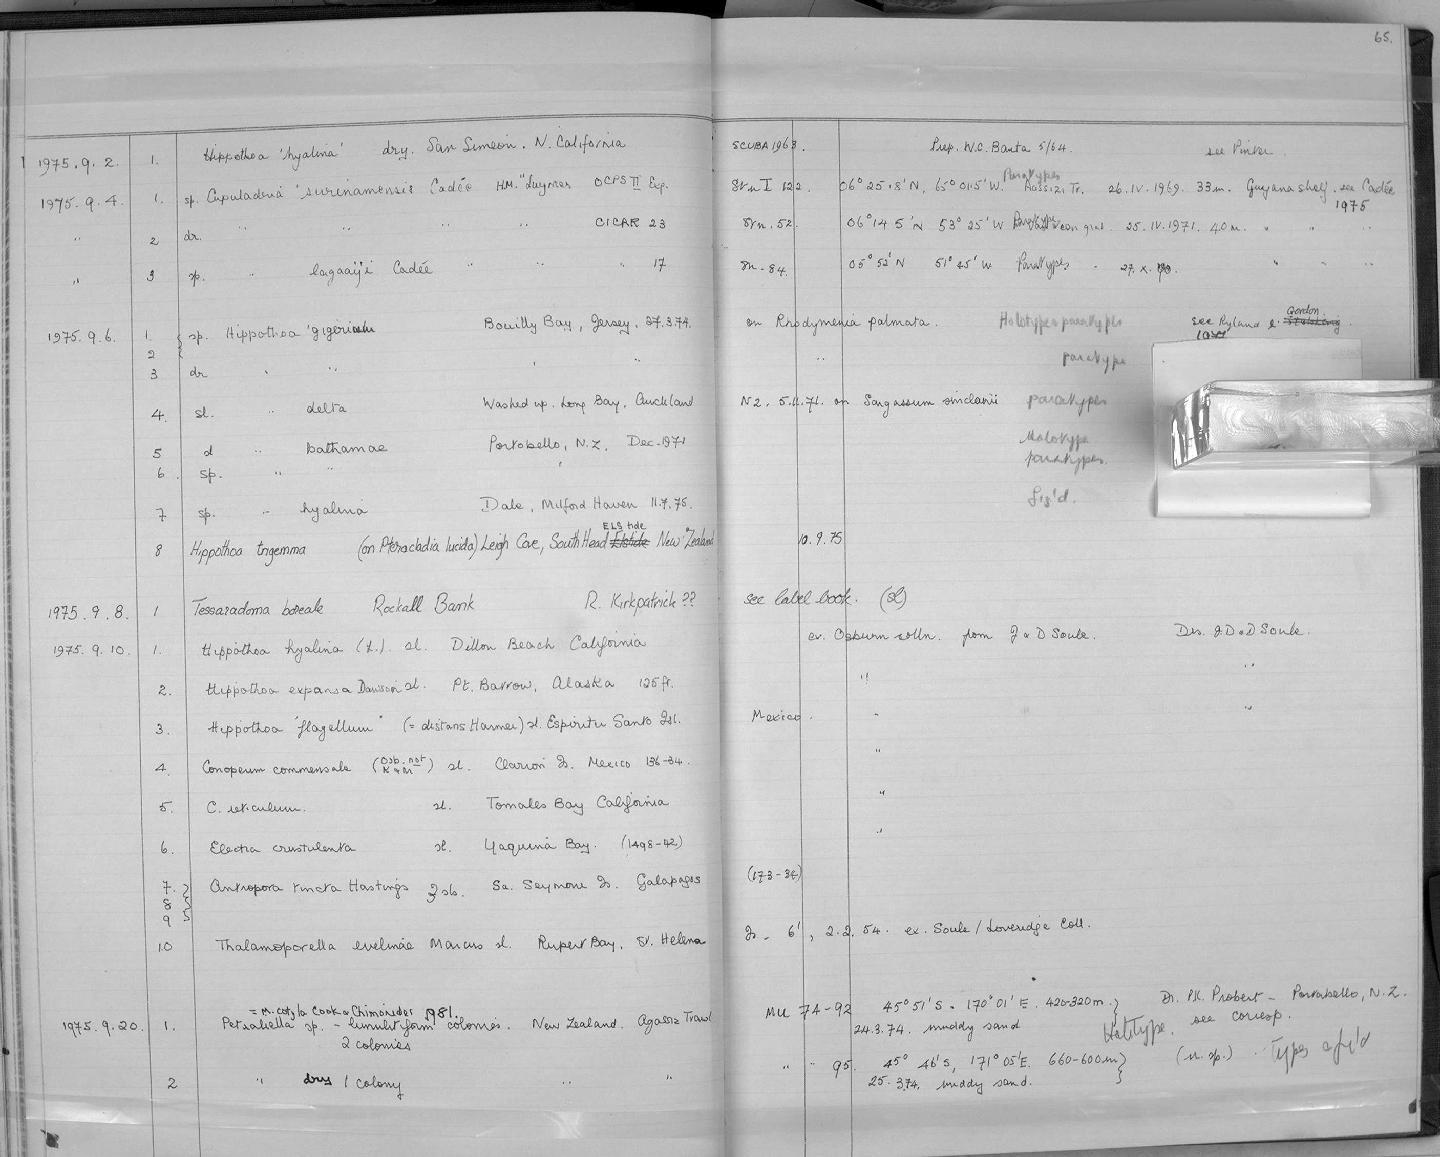 65.
1975.9.2. 1. Hippothoa 'hyalina' dry. San Simeon. N. California SCUBA 1963. Prep. W.C. Banta 5/64. see Pinter.
1975.9.4. 1. sp. Cupuladria surinamensis Cadée H.M. "Luymes OCPS II Exp. Stn I 122. 06° 25.8'N, 65° 01.5'W. Paratypes Tr. 26.IV.1969. 33m. Guyana shelf. see Cadée 1975
" 2 dr. " " " " CICAR 23 Stn. 52. 06° 14 5'N 53° 25'W Paratypes 25.IV.1971. 40m. " " "
" 3 sp. " lagaaiji Cadée " " 17 Stn. 84. 05° 52'N 51° 45'W Paratypes - 27.X.70. " " "
1975.9.6. 1. sp. Hippothoa Bouilly Bay, Jersey. 27.3.74. on Rhodymenia palmata. Holotype & paratypes see Ryland & Gordon
2
3 dr " " " " " paratype
4. sl. " delta Washed up. Long Bay, Auckland NZ. 5.11.71. on Sargassum sinclairii paratypes
5 d " bathamae Portobello, N.Z. Dec. 1971 Holotype
6 sp. " " " paratypes.
7 sp. " hyalina Dale, Milford Haven 11.7.75. fig'd.
8 Hippothoa trigemma (on Pterocladia lucida) Leigh Cove, South Head ELS tide New Zealand 10.9.75
1975.9.8. 1 Tessaradoma boreale Rockall Bank R. Kirkpatrick ?? see label book. (sl)
1975.9.10. 1. Hippothoa hyalina (L.) sl. Dillon Beach California ex. Osburn colln. from J & D Soule. Drs. J.D & D Soule.
2. Hippothoa expansa Dawson sl. Pt. Barrow, Alaska 125 ft. " "
3. Hippothoa "flagellum" (= distans Harmer) sl. Espiritu Santo Isl. Mexico. " "
4. Conopeum commensale (Osb. not K & M) sl. Clarion Is. Mexico 136-34. "
5. C. reticulum. sl. Tomales Bay California "
6. Electra crustulenta sl. Yaquina Bay. (1498-42) "
7. Antropora tincta Hastings 3 sls. So. Seymour Is. Galapagos (173-34)
8
9
10 Thalamoporella evelinae Marcus sl. Rupert Bay, St. Helena Is. 6', 2.2.54. ex. Soule / Loveridge Coll.
= M. cotyla Cook & Chimonides 1981.
1975.9.20. 1. Petraliella sp. - lunulitiform colonies. New Zealand. Agassiz Trawl MU 74-92 45° 51'S. 170° 01'E. 420-320m. Dr. P.K. Probert - Portobello, N.Z.
2 colonies 24.3.74. muddy sand Holotype. see corresp.
2 " dry 1 colony " " " " 95. 45° 46'S, 171° 05'E. 660-600m (n. sp.) Types & fig'd
25.3.74. muddy sand.